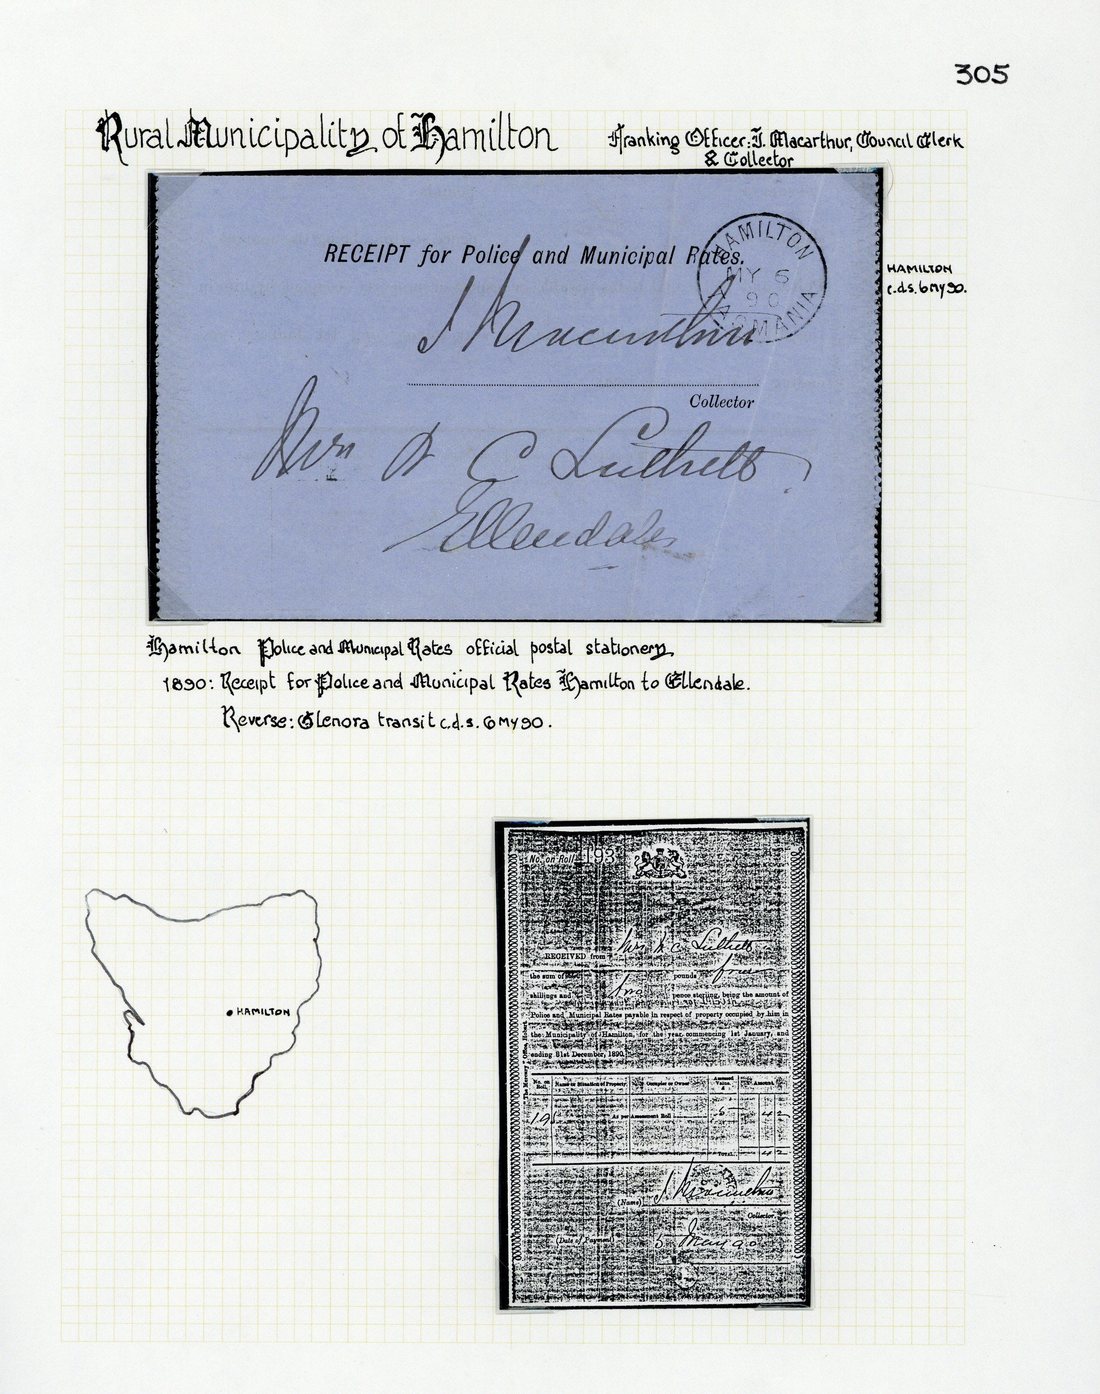 305
Rural Municipality of Hamilton
Franking Officer: J. Macarthur, Council Clerk
& Collector
RECEIPT for Police and Municipal Rates.
HAMILTON
MY 6
90
TASMANIA
HAMILTON
c.d.s. 6MY90.
J Macarthur
Collector
Mrs
C
Ellendale
Hamilton Police and Municipal Rates official postal stationery
1890: Receipt for Police and Municipal Rates Hamilton to Ellendale.
Reverse: Glenora transit c.d.s. 6MY90.
HAMILTON
No. on Roll 193
RECEIVED from Mrs
the sum of pounds four
shillings and two pence sterling, being the amount of
Police and Municipal Rates payable in respect of property occupied by him in
the Municipality of Hamilton, for the year commencing 1st January, and
ending 31st December, 1890.
No. on Roll. Name or Situation of Property. Occupier or Owner. Assessed Value. £ Amount.
As per Assessment Roll 4 2
Total 4 2
(Name) J. Macarthur
Collector
(Date of Payment) 5 May 90